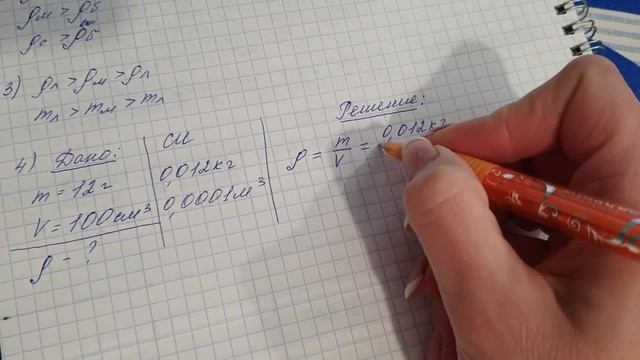 ρм > ρб
ρс > ρб
3) ρл > ρм > ρл
mл > mм > mл
4) Дано:
m = 12 г
V = 100 см³
ρ - ?
СИ
0,012 кг
0,0001 м³
Решение:
ρ = m/V = 0,012 кг